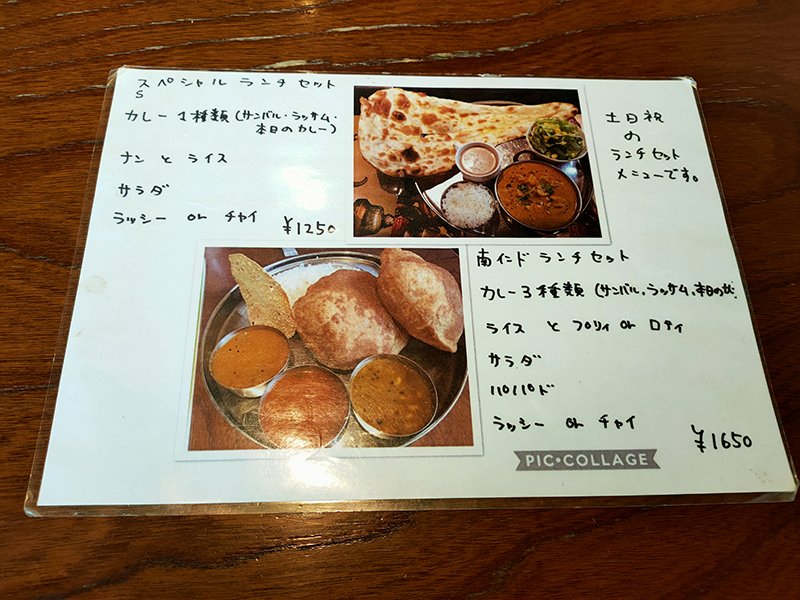 スペシャル ランチ セット
S
カレー 1種類 (サンバル・ラッサム・
本日のカレー)
ナン と ライス
サラダ
ラッシー or チャイ
¥1250
土日祝
の
ランチセット
メニューです。
南インド ランチ セット
カレー 3種類 (サンバル、ラッサム、本日の
ライス と プリィ or ロティ
サラダ
パパド
ラッシー or チャイ
¥1650
PIC•COLLAGE